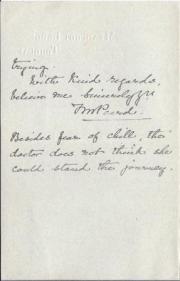 trying.
With kind regards,
believe me sincerely yrs
FM Peard.
Besides fear of chill, the
doctor does not think she
could stand the journey.